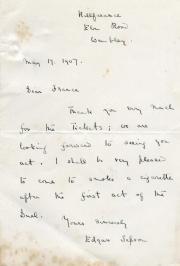 Hillpresence
Elm Road
Wembley.
May 17. 1907.
Dear
Thank you very much
for the tickets; we are
looking forward to seeing you
act. I shall be very pleased
to come to smoke a cigarette
after the first act of the
Duel.
Yours sincerely
Edgar Jepson